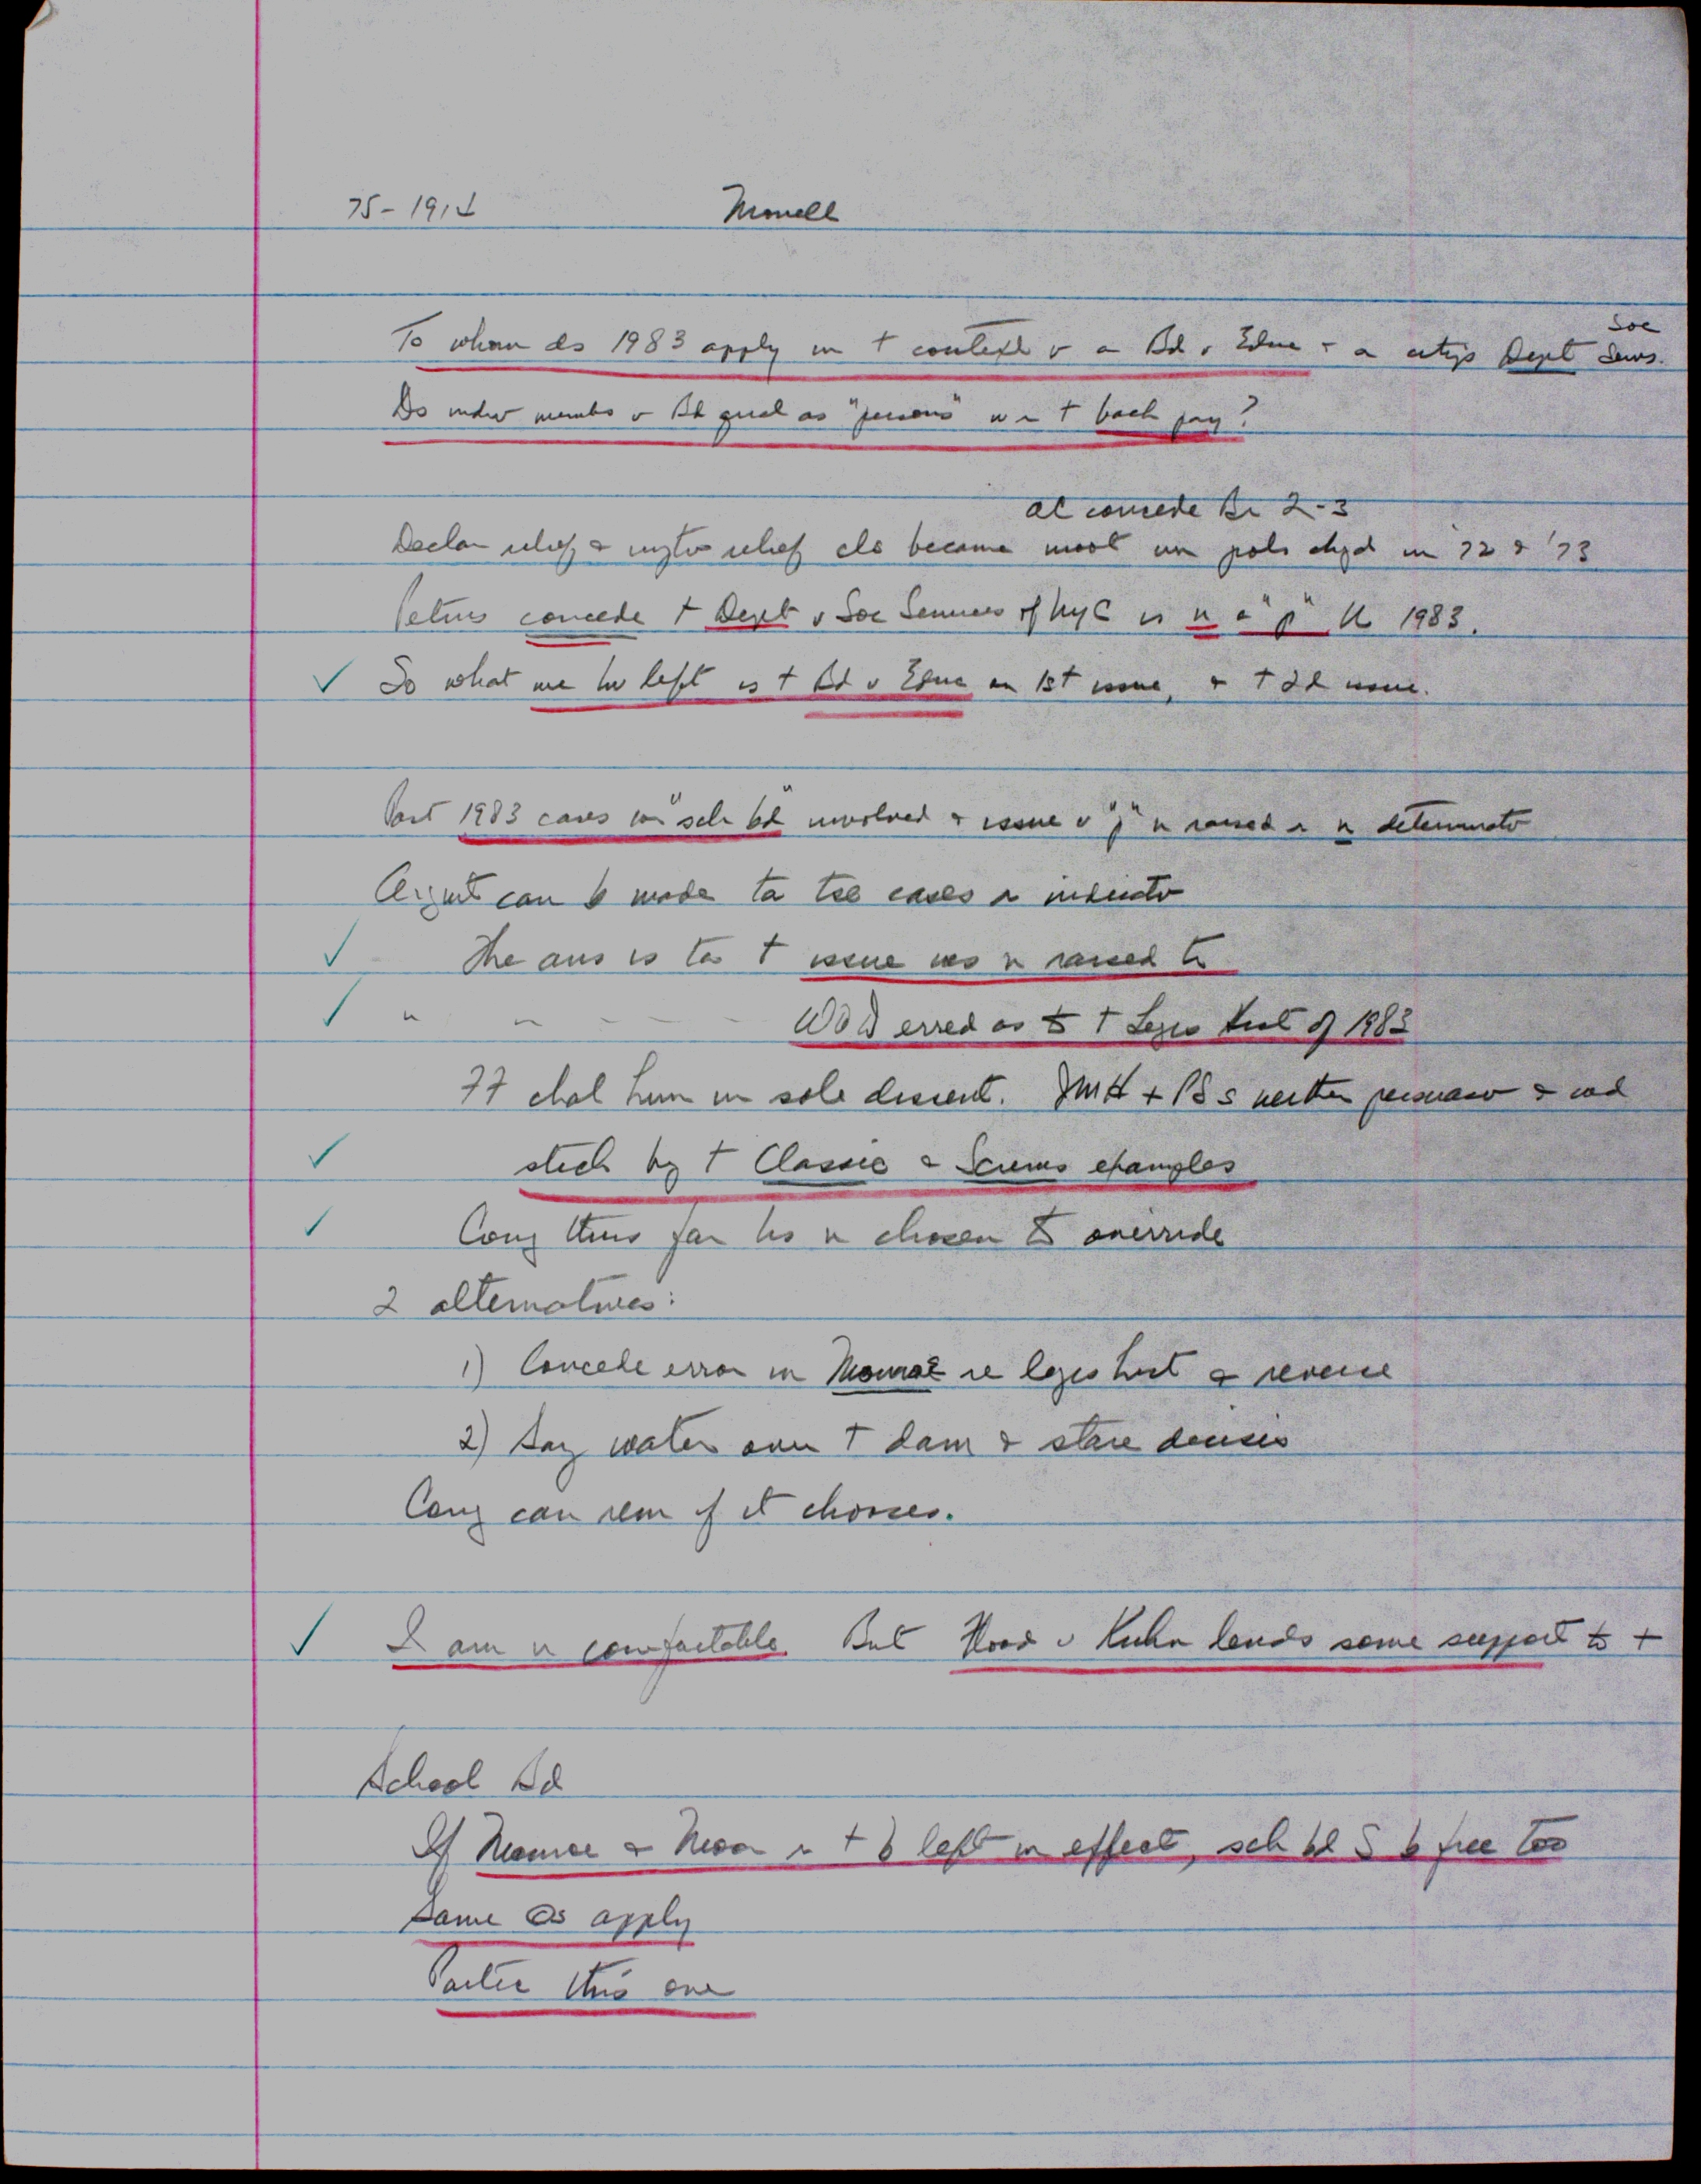 75-1914 Monell
Soc
To whom ds 1983 apply in t context v a Bd v Educ + a city's Dept Servs.
Do indiv membs v Bd qual as "persons" w n t back pay?
all concede Br 2-3
Declar relief & injtv relief cls became moot wn pols chgd in '72 & '73
Petnrs concede t Dept v Soc Services of NYC is n a "p" U 1983.
So what we hv left is t Bd v Educ on 1st issue, & t 2d issue.
Past 1983 cases wn "sch bd" involved & issue v "p" n raised r n determintv
Argmt can b made ta tse cases r indicatv
The ans is ta t issue ws n raised tr
" " - - - - WOD erred as to t Legis Hist of 1983
FF chal him in sole dissent. JMH + PS s neither persuasv & wd
stick by t Classic & Screws examples
Cong thus far hs n chosen to override
2 alternatives:
1) Concede error in Monroe re legis hist & reverse
2) Say water over t dam & stare decisis
Cong can rem if it chooses.
I am n comfortable. But Flood v Kuhn lends some support to t
School Bd
If Monroe & Moor r t b left in effect, sch bd S b free too
Same as apply
Partic this one